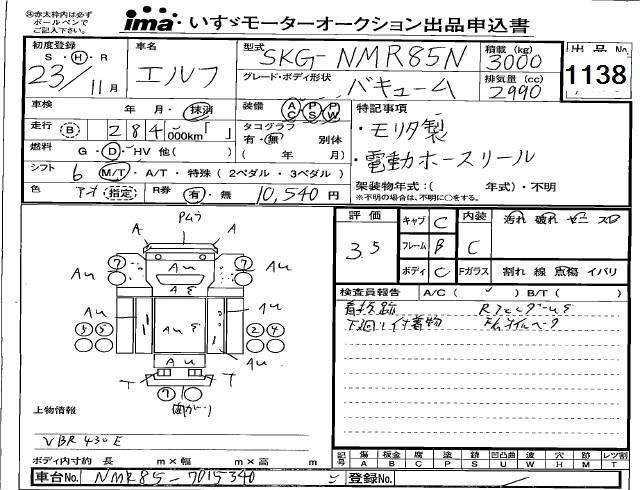 ㊟赤太枠内は必ず
ボールペンで
ご記入下さい。
ima いすゞモーターオークション出品申込書
初度登録 S・H・R 23/11月
車名 エルフ
型式 SKG-NMR85N
グレード・ボディ形状 バキューム
積載 (kg) 3000
排気量 (cc) 2990
出品No
1138
車検 年 月・抹消
装備 AC PS PW
走行 B 284,000km
タコグラフ 有・無 別体
( 年 月)
燃料 G・D・HV 他( )
シフト 6 M/T・A/T・特殊 (2ペダル・3ペダル)
色 (指定) R券 有・無 10,540円
特記事項
・モリタ製
・電動ホースリール
架装物年式:( 年式)・不明
※不明の場合は、不明に○をする。
評価 3.5
キャブ C
フレーム B
ボディ C
内装 C
汚れ 破れ
Fガラス 割れ 線 点傷 イバリ
検査員報告 A/C( ) B/T( )
下回りイナ着物
A A
7 7
Au Au Au
AE
5 5 AuE 2 4
Au
T T
7
上物情報
VBR430E
ボディ内寸約 長 m×幅 m×高 m
記号 傷A 板金B 腐C 塗P 錆S 凹凸曲U 波W 穴H 跡M レツ割T
車台No. NMR85-7015340
登録No.